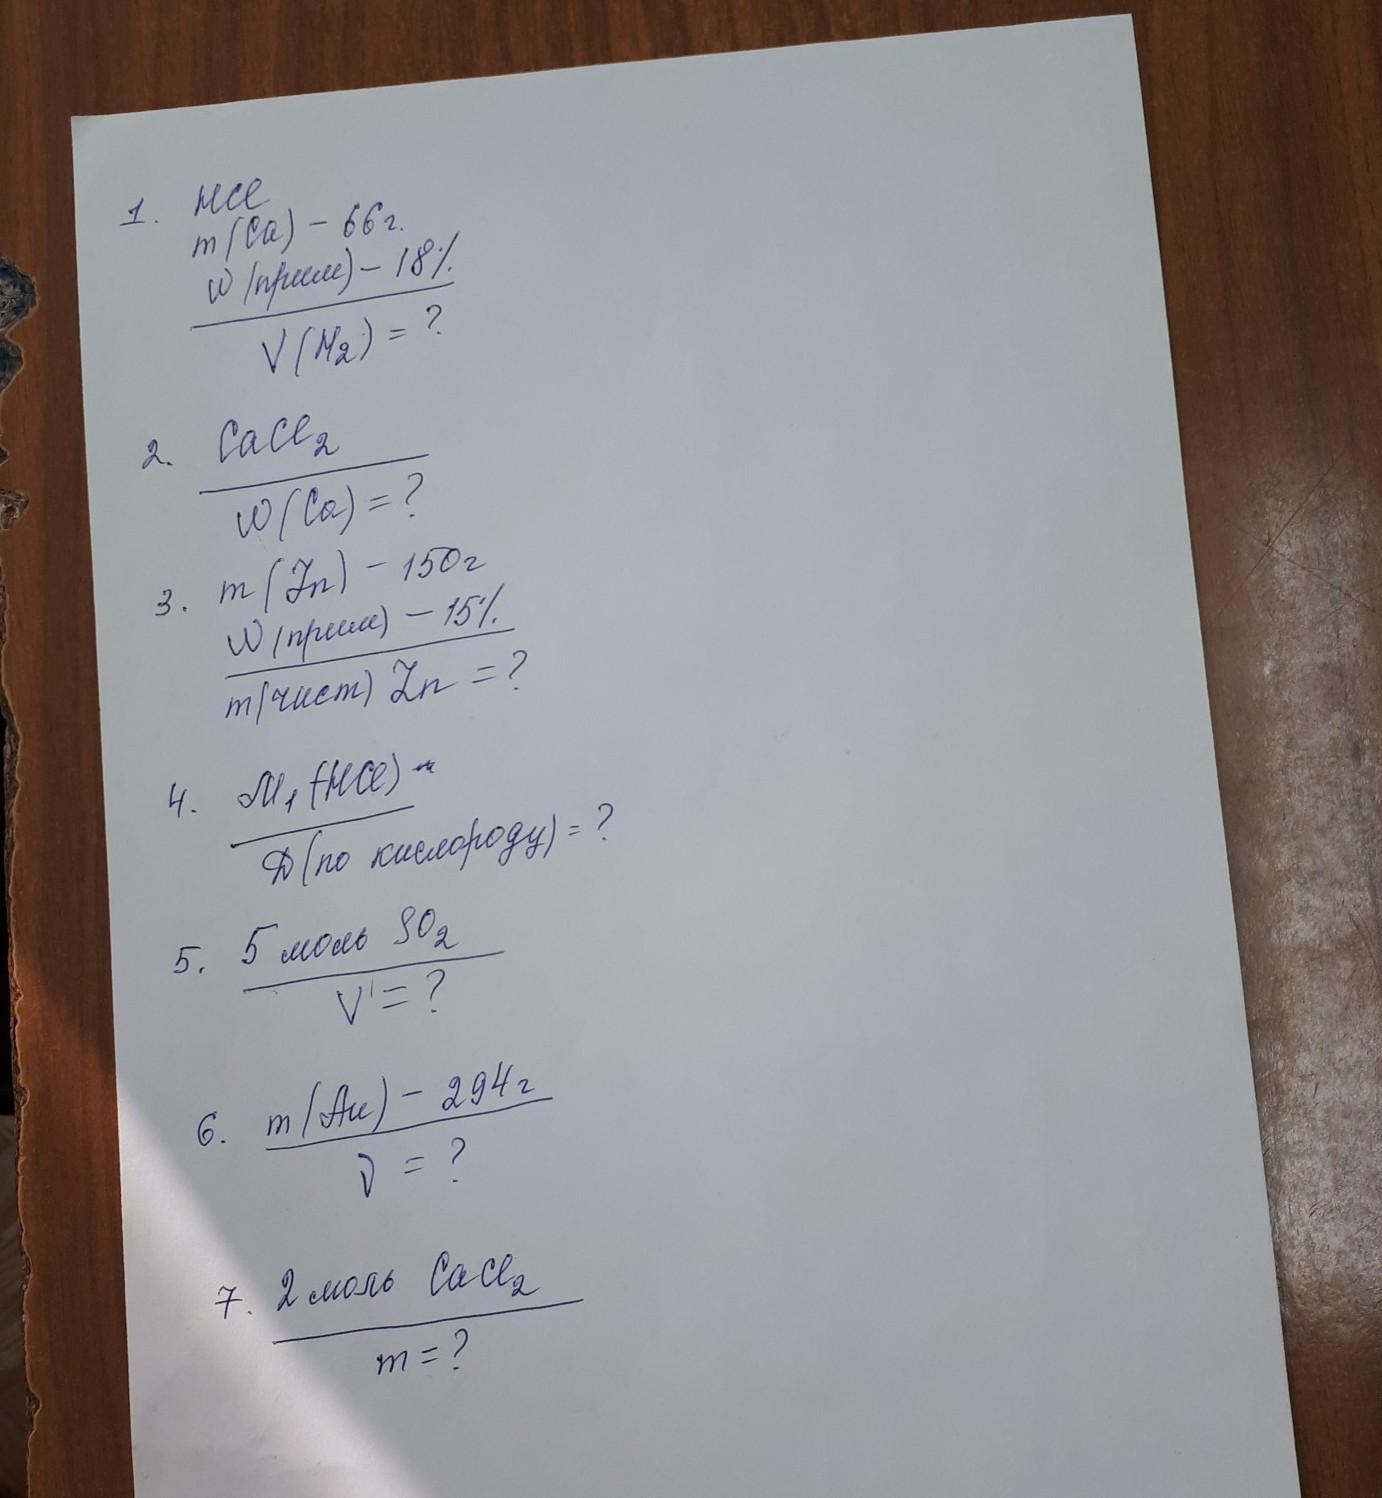 1. HCl
m(Ca) - 66г.
W(прим) - 18%.
V(H2) = ?
2. CaCl2
W(Ca) = ?
3. m(Zn) - 150г
W(прим) - 15%.
m(чист) Zn = ?
4. M1(HCl) -
D(по кислороду) = ?
5. 5 моль SO2
V = ?
6. m(Au) - 294г
ν = ?
7. 2 моль CaCl2
m = ?